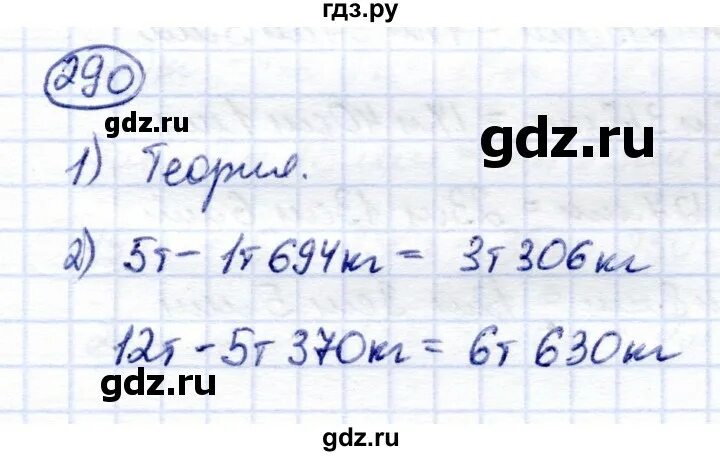 гдз.ру
290
gdz.ru
gdz.ru
1) Теория.
2) 5т - 1т 694кг = 3т 306кг
12т - 5т 370кг = 6т 630кг
gdz.ru
gdz.ru
gdz.ru